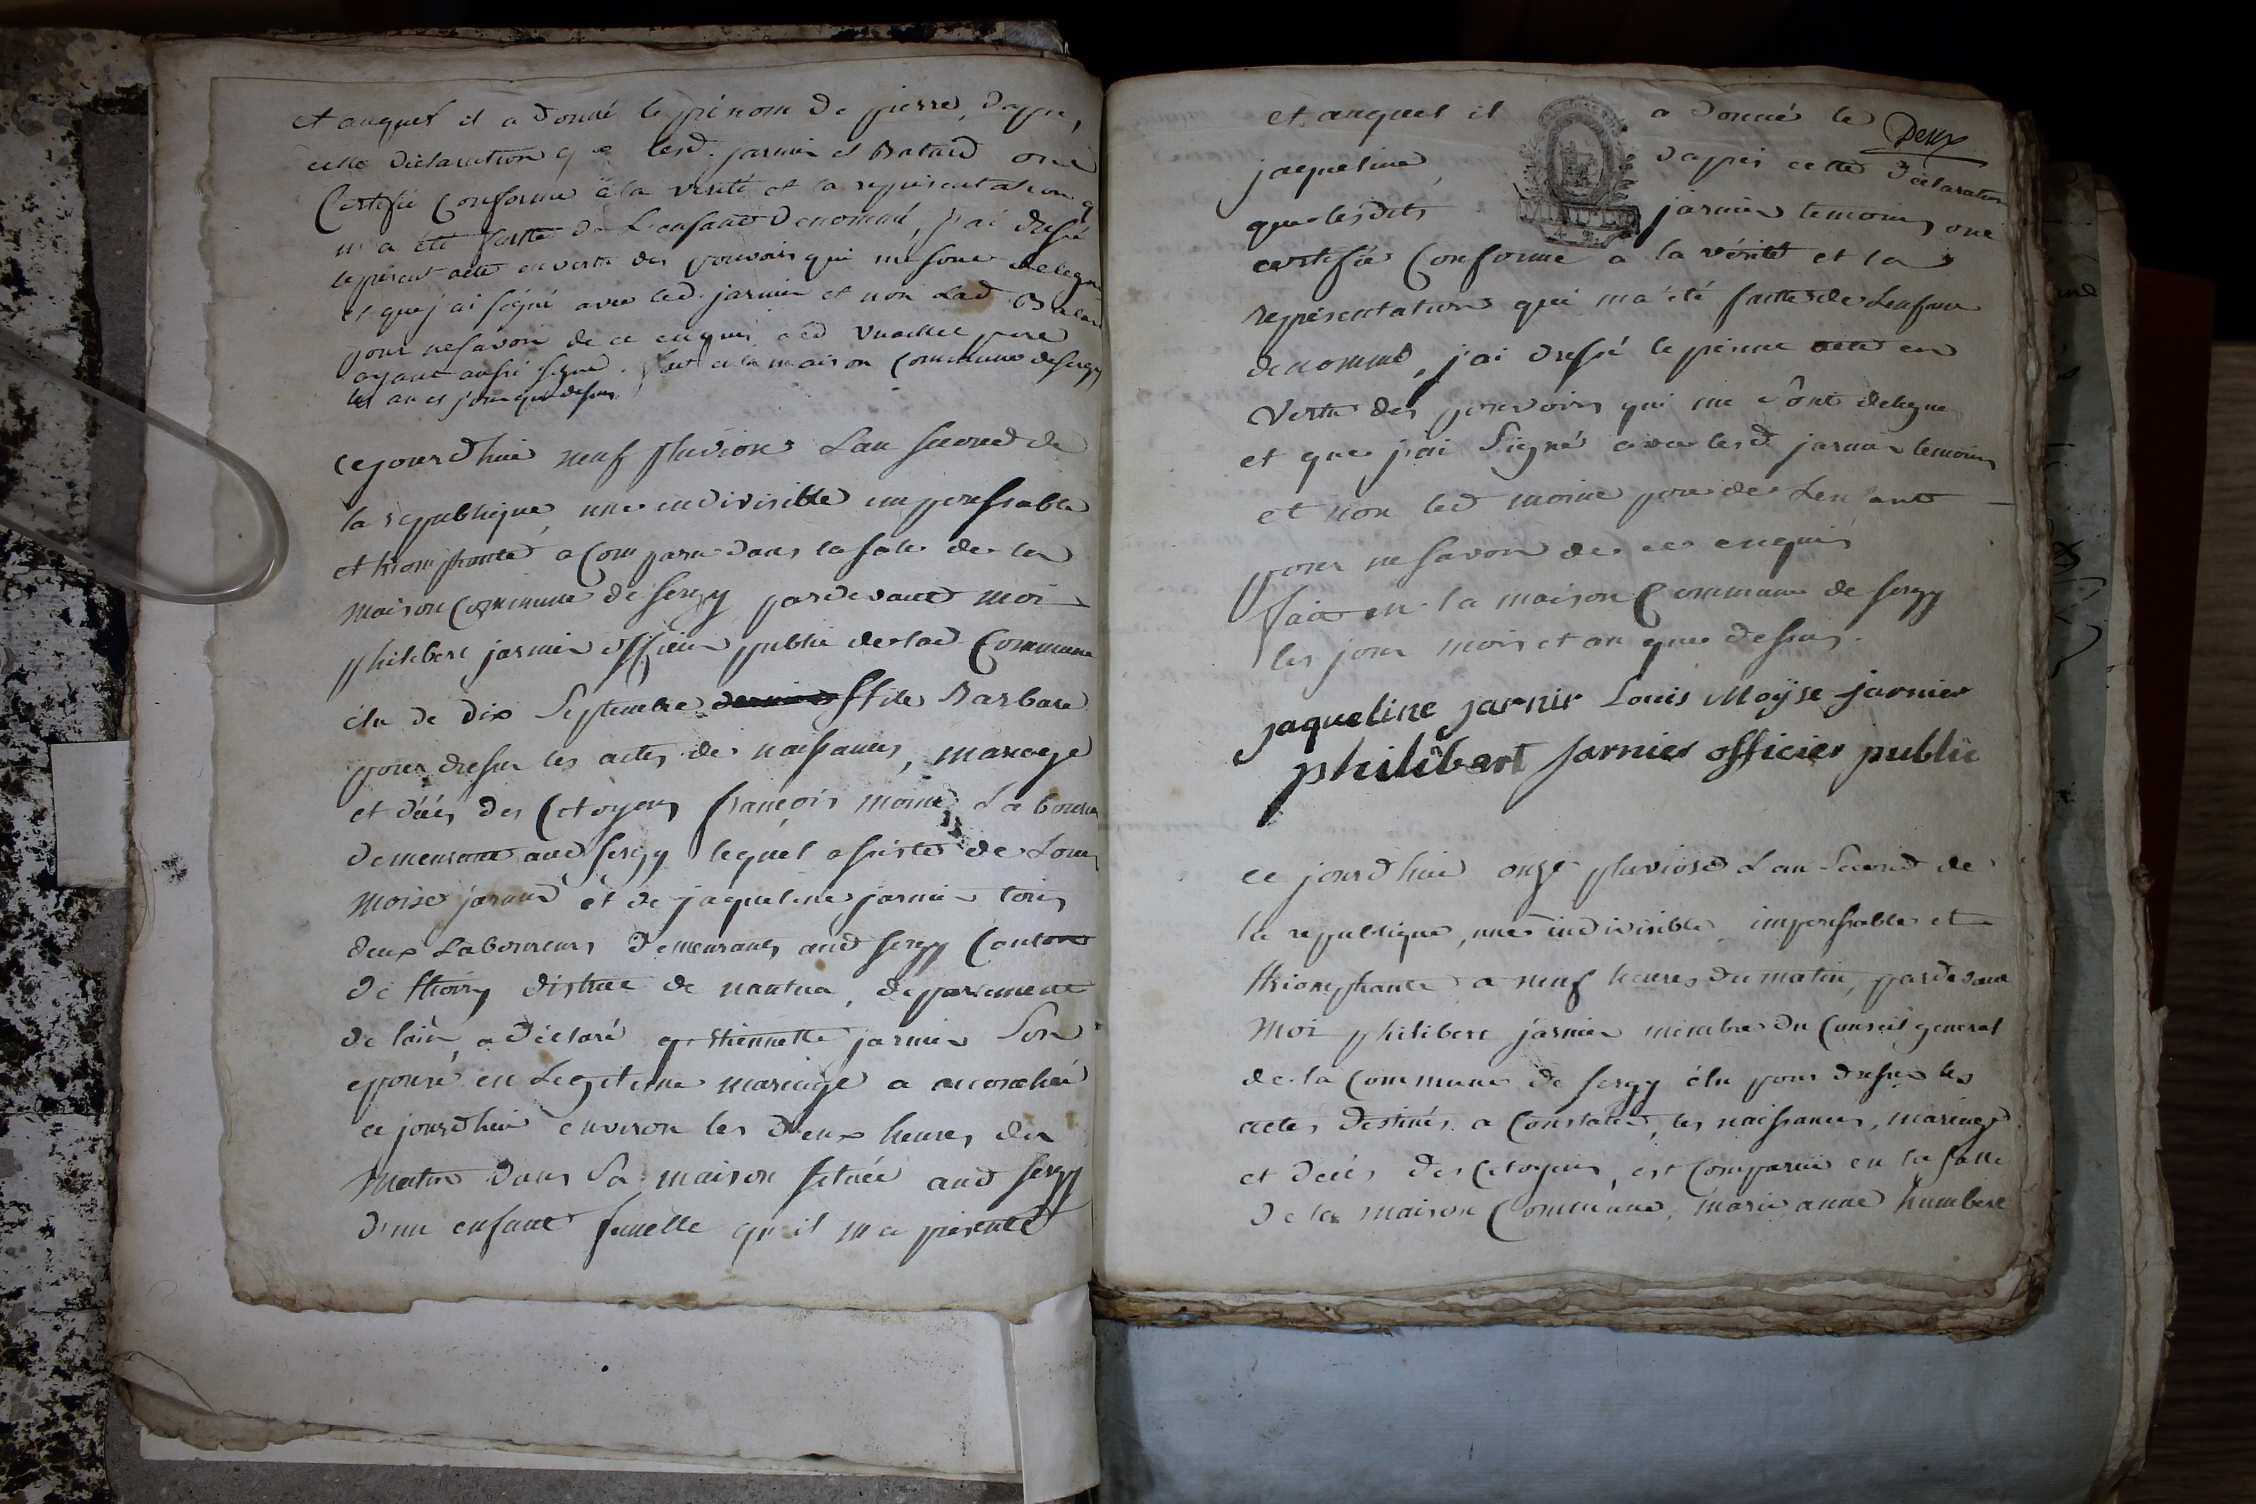 et auquel il a donné le prénom de pierre, d'apres
cette déclaration que lesd. jarnier et Batard ont
Certifié Conforme à la vérité et la représentation q
m'a été faitte de L'enfant denommé, j'ai dressé
le present acte en vertu des pouvoirs qui me sont delegué
et que j'ai signé avec led. jarnier et non Lad
pour ne savoir de ce enquis led Vuaillet pere
ayant aussi signé. fait en la maison Commune de sergy
les an et jour que dessus
cejourdhui neuf pluviose L'an second de
la republique, une indivisible imperissable
et triomphante a Comparu dans la sale de la
maison Commune de sergy pardevant moi
philibert jarnier officier public de lad Commune
élu de dix Septembre stile Barbare
pour dresser les actes de naissances, mariage
et décés des Citoyens françois moine Laboureur
demeurant aud sergy lequel assisté de Louis
moise jarnier et de jaqueline jarnier tous
deux Laboureurs demeurants aud sergy Canton
de thoiry district de nantua, departement
de l'ain, a déclaré q etiennette jarnier Son
epouse en Legitime mariage a accouché
ce jourdhui environ les deux heures du
matin dans Sa maison située aud sergy
d'un enfant femelle qu'il m'a presenté
et auquel il a donné le
Deux
jaqueline, d'apres cette déclaration
que lesdits jarnier temoins ont
certifié Conforme a la vérité et la
représentation qui m'a été faitte de L'enfant
denommé, j'ai dressé le présent acte en
Vertu des pouvoirs qui me sont delegués
et que j'ai Signé avec lesd jarnier temoins
et non led moine pere de L'enfant
pour ne savoir de ce enquis
fait en la maison Commune de sergy
les jour mois et an que dessus.
jaqueline jarnir Louis Moÿse jarnier
philibert jarnier officier public
ce jourdhui onze pluviose L'an Second de
la republique, une indivisible imperissable et
triomphante a neuf heures du matin, pardevant
moi philibert jarnier membre du Conseil general
de la Commune de sergy élu pour dresser les
actes destinés a Constater, les naissances, mariage
et décés des Citoyens, est Comparue en la salle
de la maison Commune, marie anne humbert